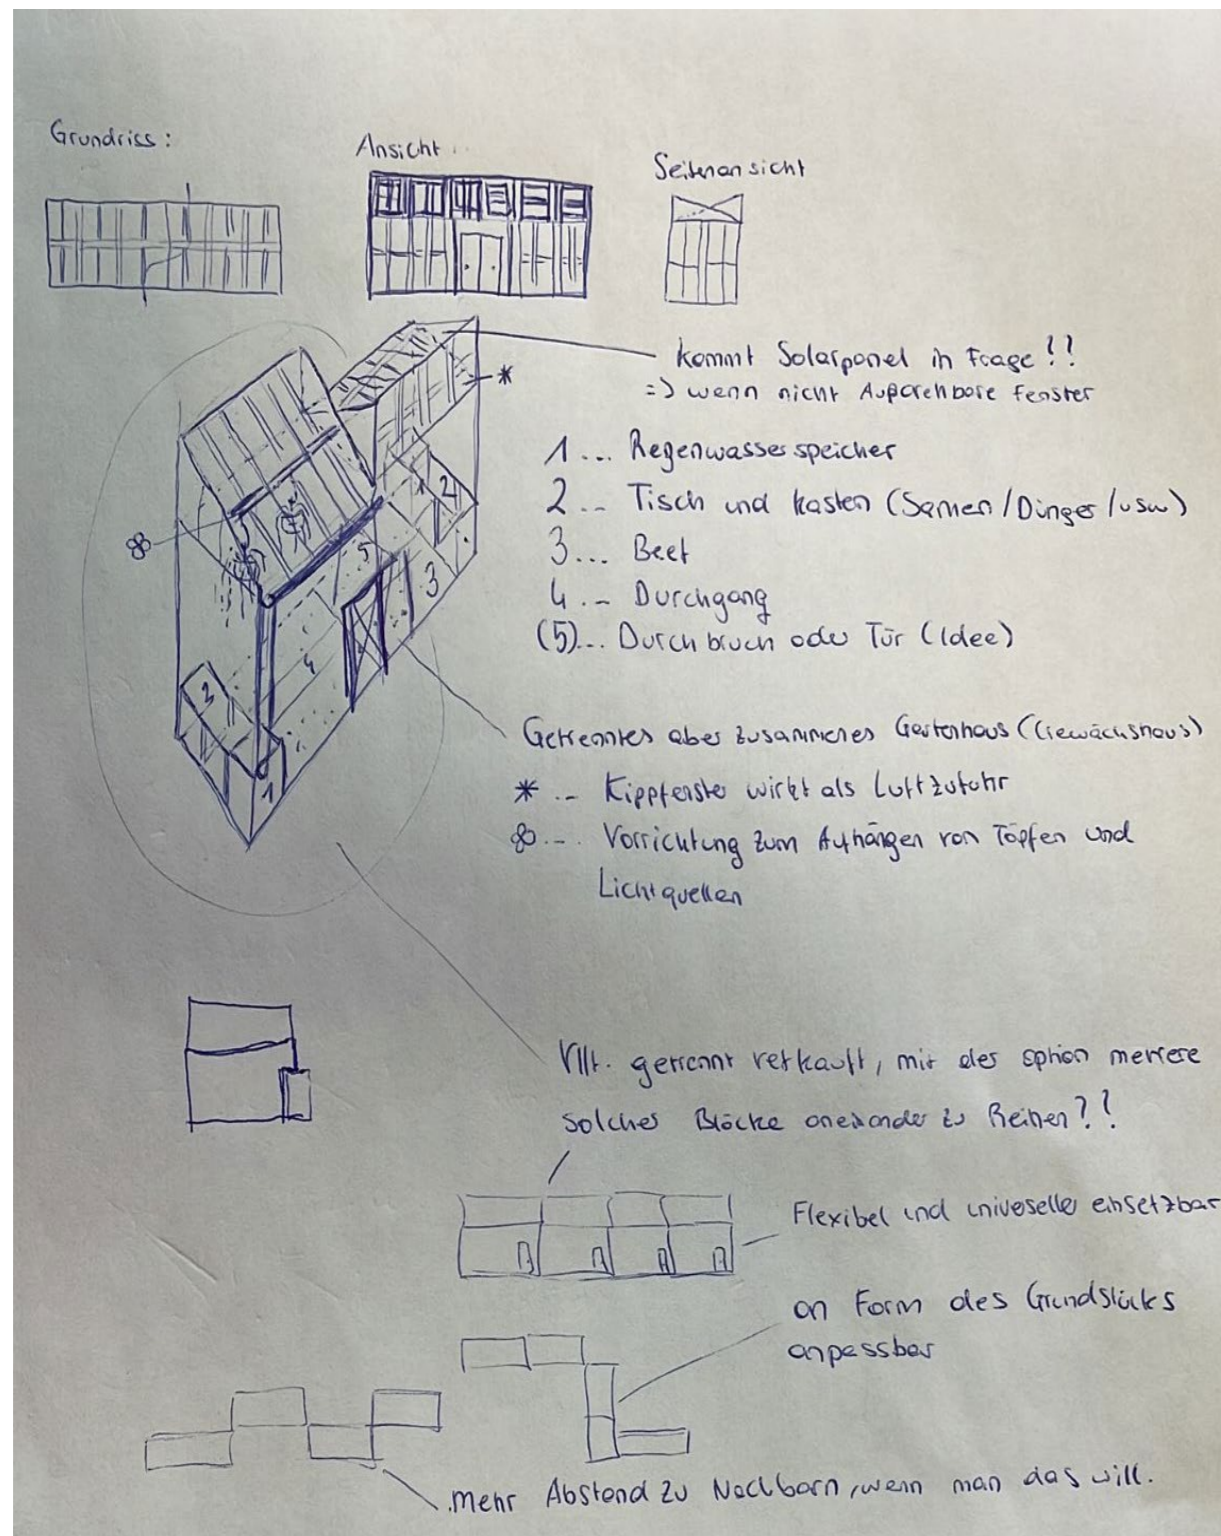 Grundriss:
Ansicht
Seitenansicht
kommt Solarpanel in Frage!!
=> wenn nicht Aufdrehbare Fenster
*
1 ... Regenwasserspeicher
2 .. Tisch und kasten (Samen/Dünger/usw)
3 ... Beet
4 .. Durchgang
(5)... Durchbruch oder Tür (Idee)
1
2
5
3
4
2
1
Getrenntes aber zusammenes Gartenhaus (Gewächshaus)
* .. Kippfenster wirkt als Luftzufuhr
... Vorrichtung zum Aufhängen von Töpfen und
Lichtquellen
Vllt. getrennt verkauft, mit der option merere
solcher Blöcke aneinander zu Reihen??
Flexibel und univeseller einsetzbar
an Form des Grundstücks
anpassbar
mehr Abstand zu Nachbarn, wenn man das will.